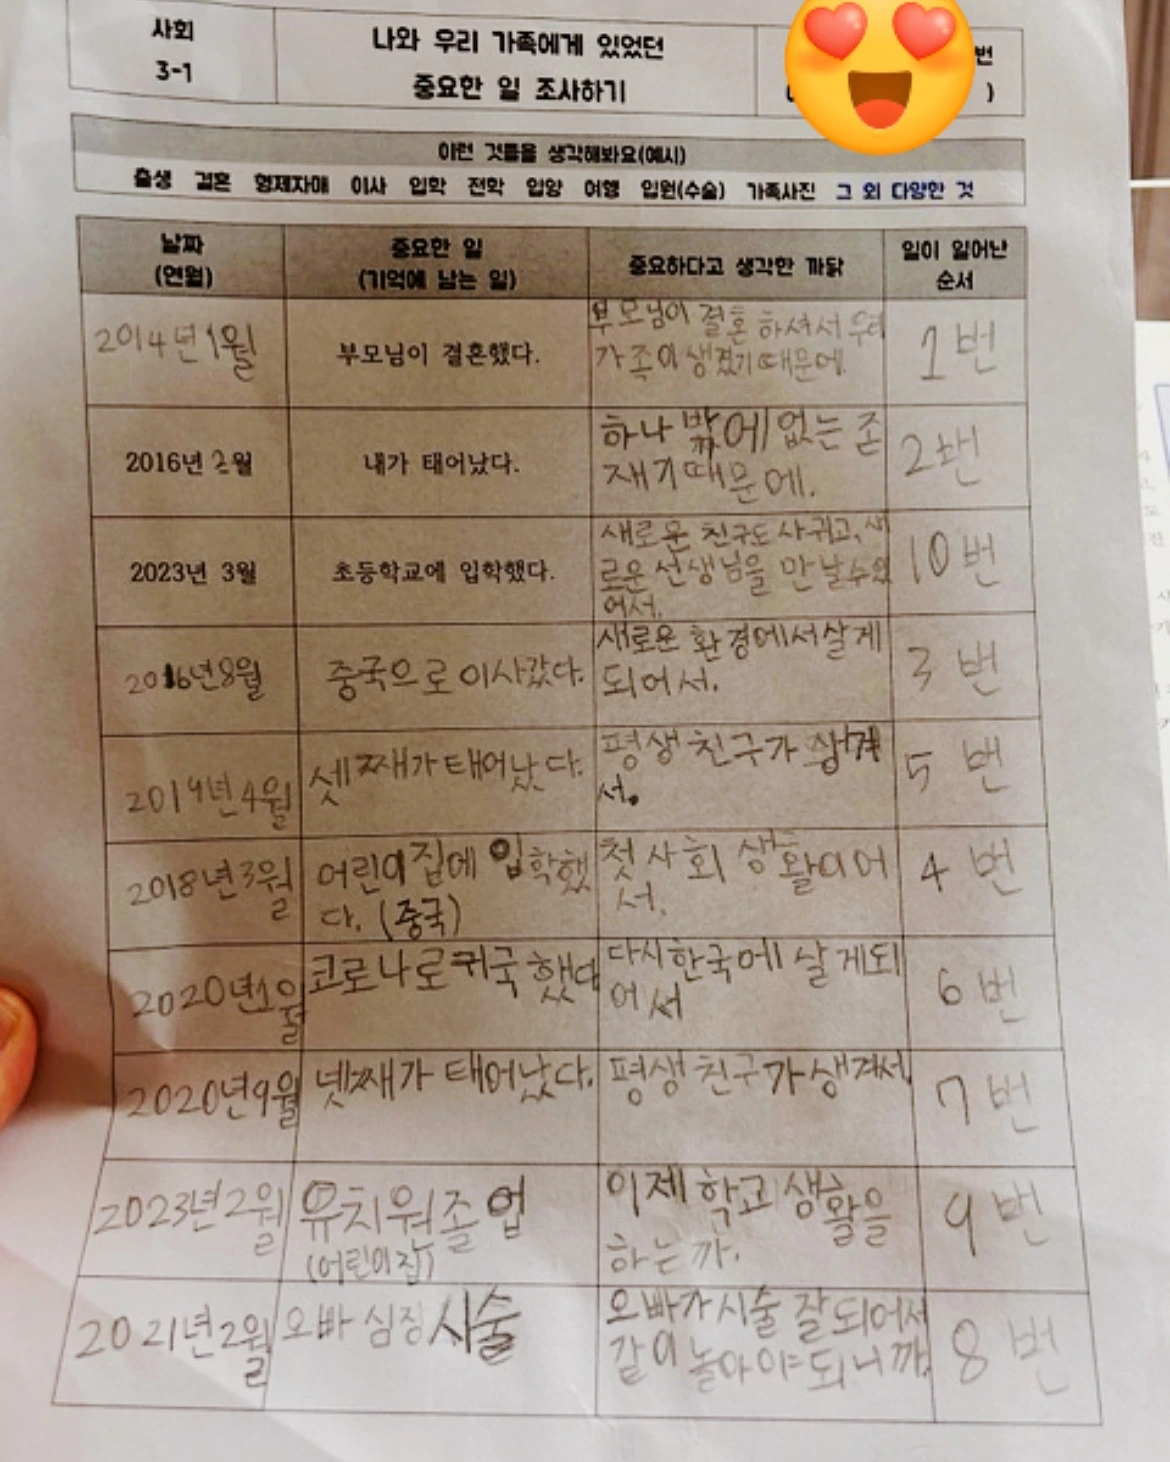 사회
3-1
나와 우리 가족에게 있었던
중요한 일 조사하기
번
)
이런 것들을 생각해봐요(예시)
출생 결혼 형제자매 이사 입학 전학 입양 여행 입원(수술) 가족사진 그 외 다양한 것
날짜
(연월)
중요한 일
(기억에 남는 일)
중요하다고 생각한 까닭
일이 일어난
순서
2014년 1월
부모님이 결혼했다.
부모님이 결혼 하셔서 우리
가족이 생겼기 때문에.
1번
2016년 2월
내가 태어났다.
하나 밖에 없는 존
재기 때문에.
2번
2023년 3월
초등학교에 입학했다.
새로운 친구도 사귀고, 새
로운 선생님을 만날 수 있
어서.
10번
2016년 8월
중국으로 이사갔다.
새로운 환경에서 살게
되어서.
3번
2019년 4월
셋째가 태어났다.
평생 친구가 생겨
서.
5번
2018년 3월
어린이집에 입학했
다. (중국)
첫 사회 생활이어
서.
4번
2020년 1월
코로나로 귀국 했다
다시 한국에 살게 되
어서
6번
2020년 9월
넷째가 태어났다.
평생 친구가 생겨서.
7번
2023년 2월
유치원 졸업
(어린이집)
이제 학교 생활을
하는까.
9번
2021년 2월
오빠 심장 시술
오빠가 시술 잘 되어서
같이 놀아야 되니까.
8번